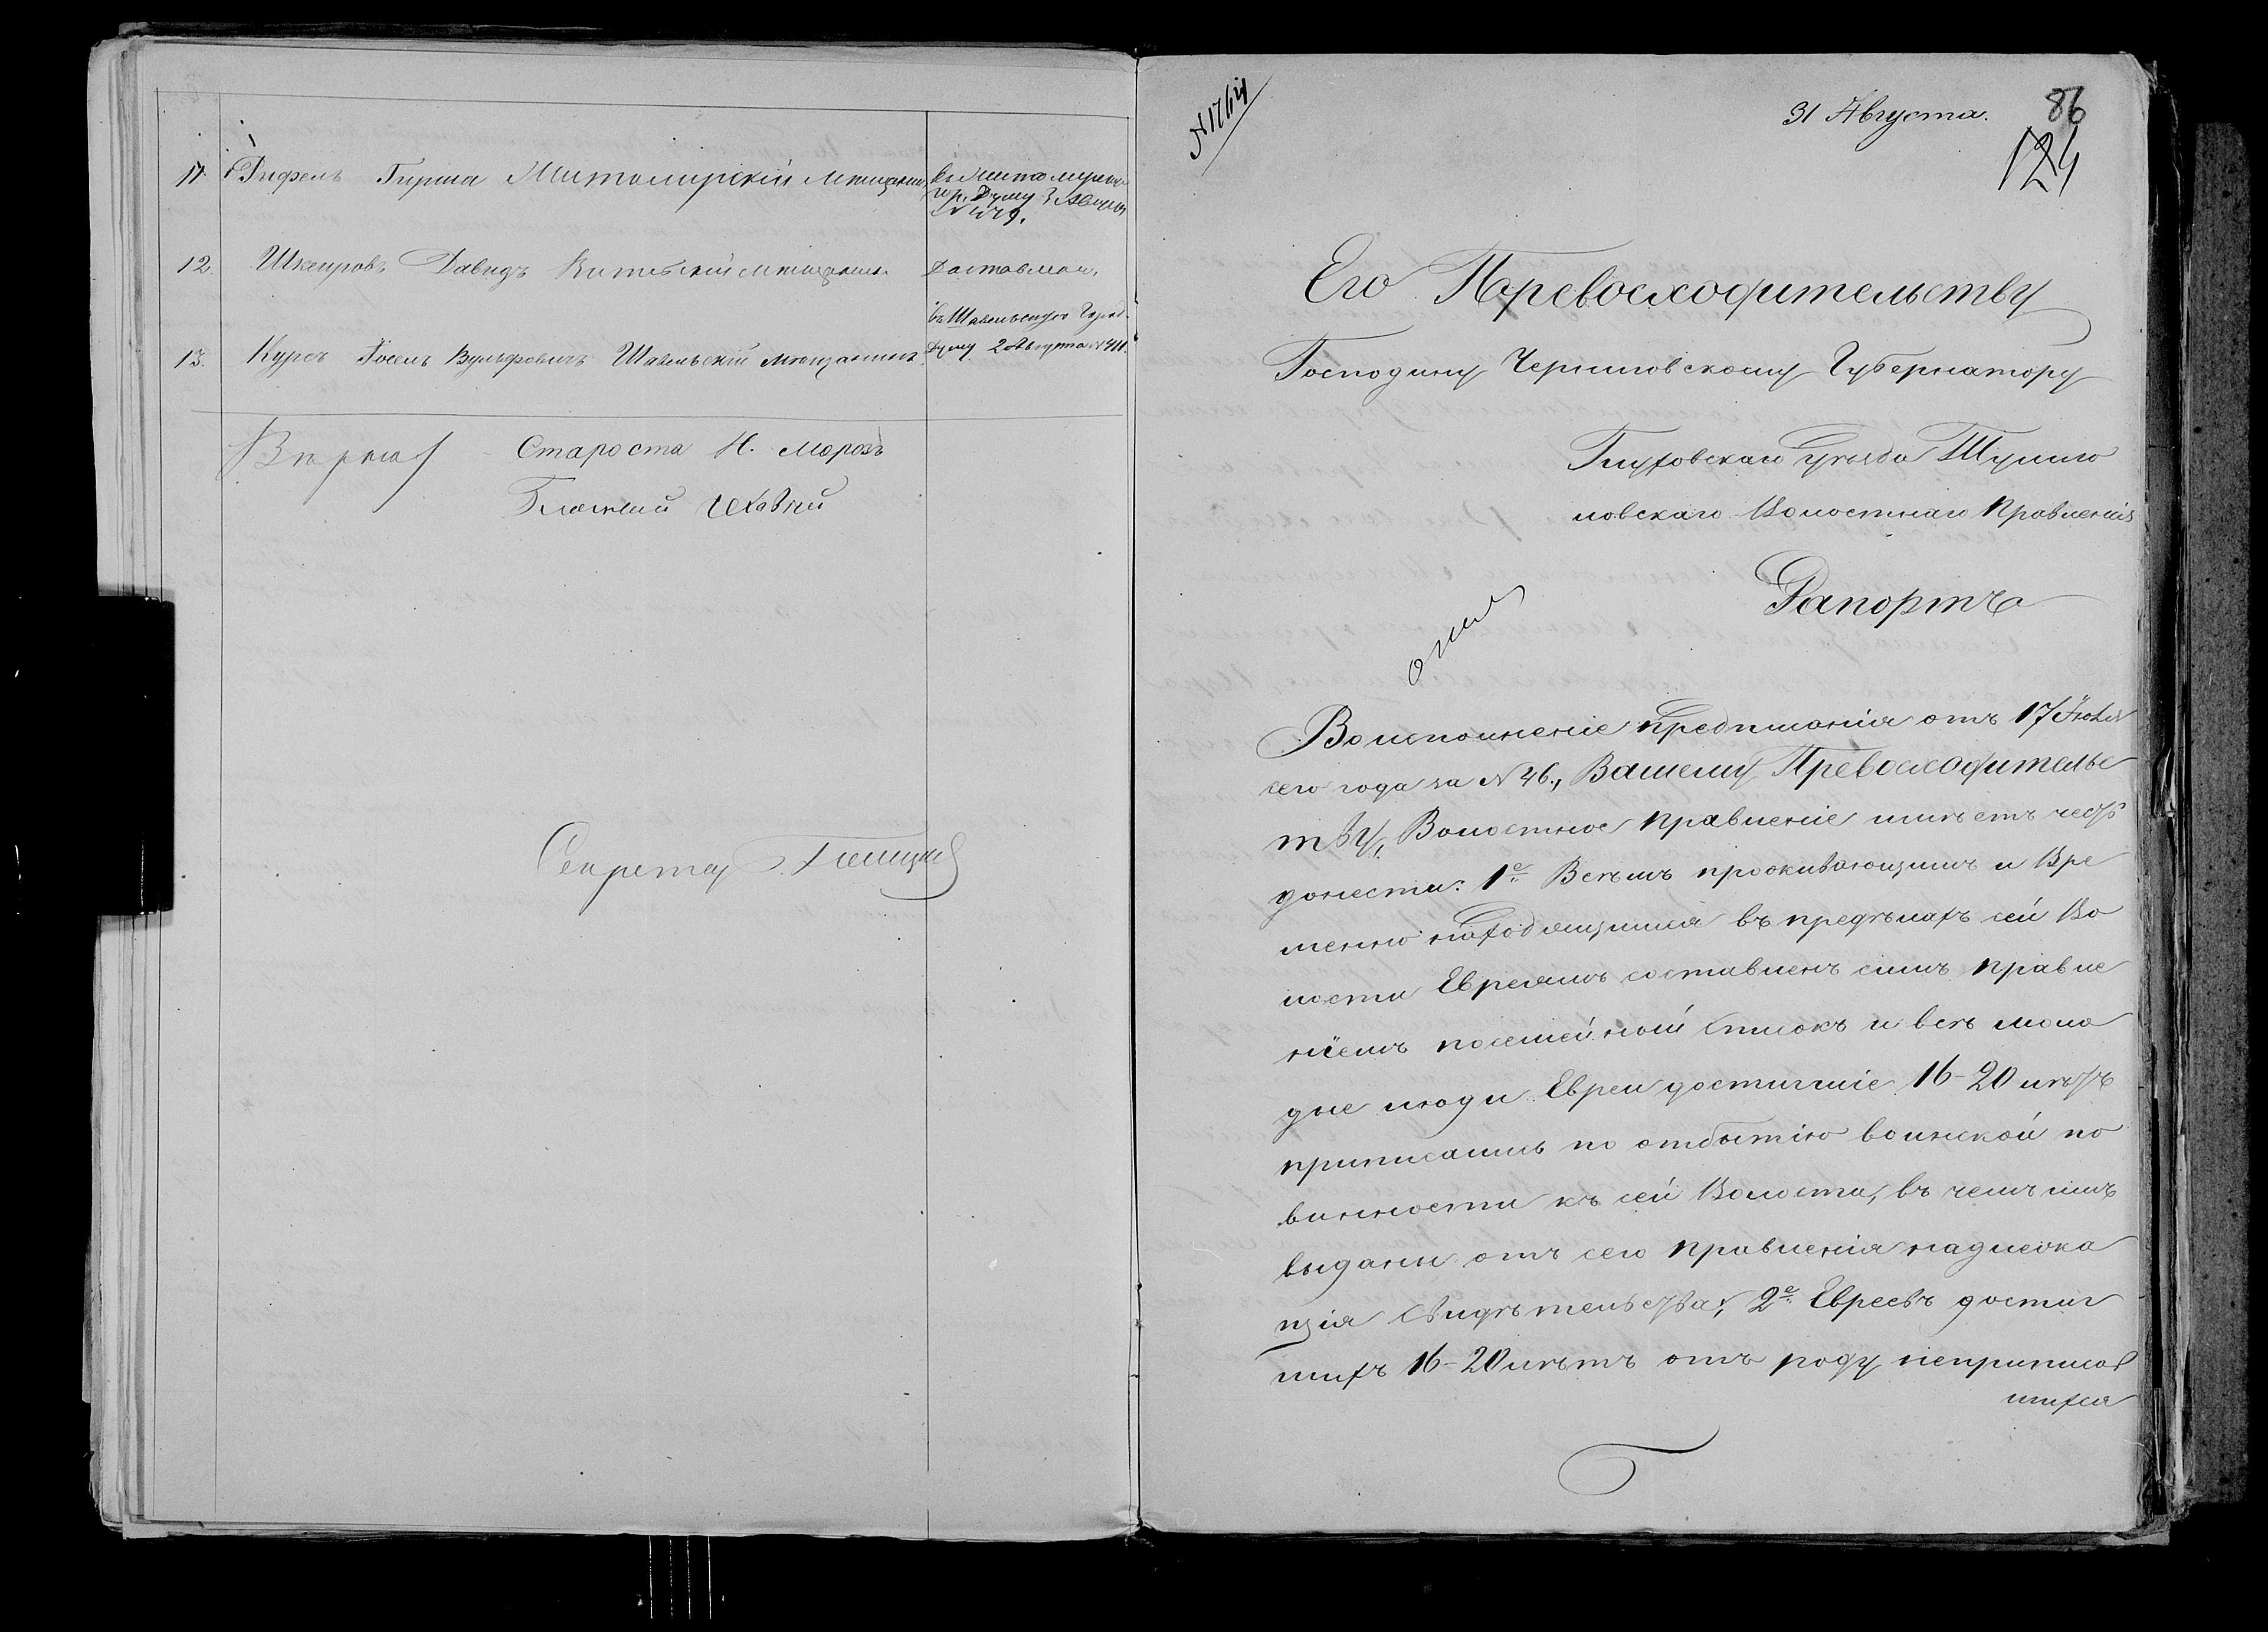 11. Рифель Гирша Житомирскій мѣщанинъ
въ Житомирск.
гор. Думу 3 Августа
12. Шкепровъ Давидъ Витебскій мѣщанинъ
въ Шавельскую Город.
13. Курсъ Іосель Вульфовичъ Шавельскій мѣщанинъ
Думу 2 Августа № 411.
Вѣрно
Староста Н. Морозъ
Секретарь
№ 1764
31 Августа.
86
124
Его Превосходительству
Господину Черниговскому Губернатору
Глуховскаго уѣзда Тулиго
ловскаго Волостнаго Правленія
Рапортъ
Во исполненіе предписанія отъ 17 Іюля
сего года за № 46, Вашему Превосходительс
тву, Волостное Правленіе имѣетъ честь
донести: 1е Всѣмъ проживающимъ и вре
менно находящимся въ предѣлахъ сей Во
лости Евреямъ составленъ симъ Правле
ніемъ посемейный списокъ и всѣ моло
дые люди Евреи достигшіе 16-20 лѣтъ
приписаны по отбытію воинской по
винности къ сей Волости, въ чемъ имъ
выданы отъ сего Правленія надлежа
щія свидѣтельства; 2е Евреевъ достиг
шихъ 16-20 лѣтъ отъ роду неприписав
шихся